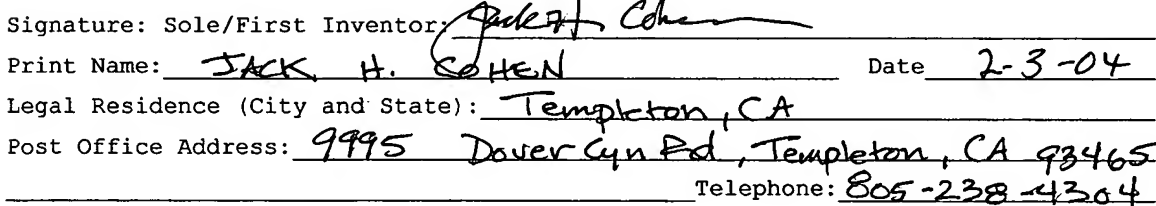 Signature: Sole/First Inventor: Jack H Cohen
Print Name: JACK H. COHEN Date 2-3-04
Legal Residence (City and State): Templeton, CA
Post Office Address: 9995 Dover Cyn Rd, Templeton, CA 93465
Telephone: 805-238-4304